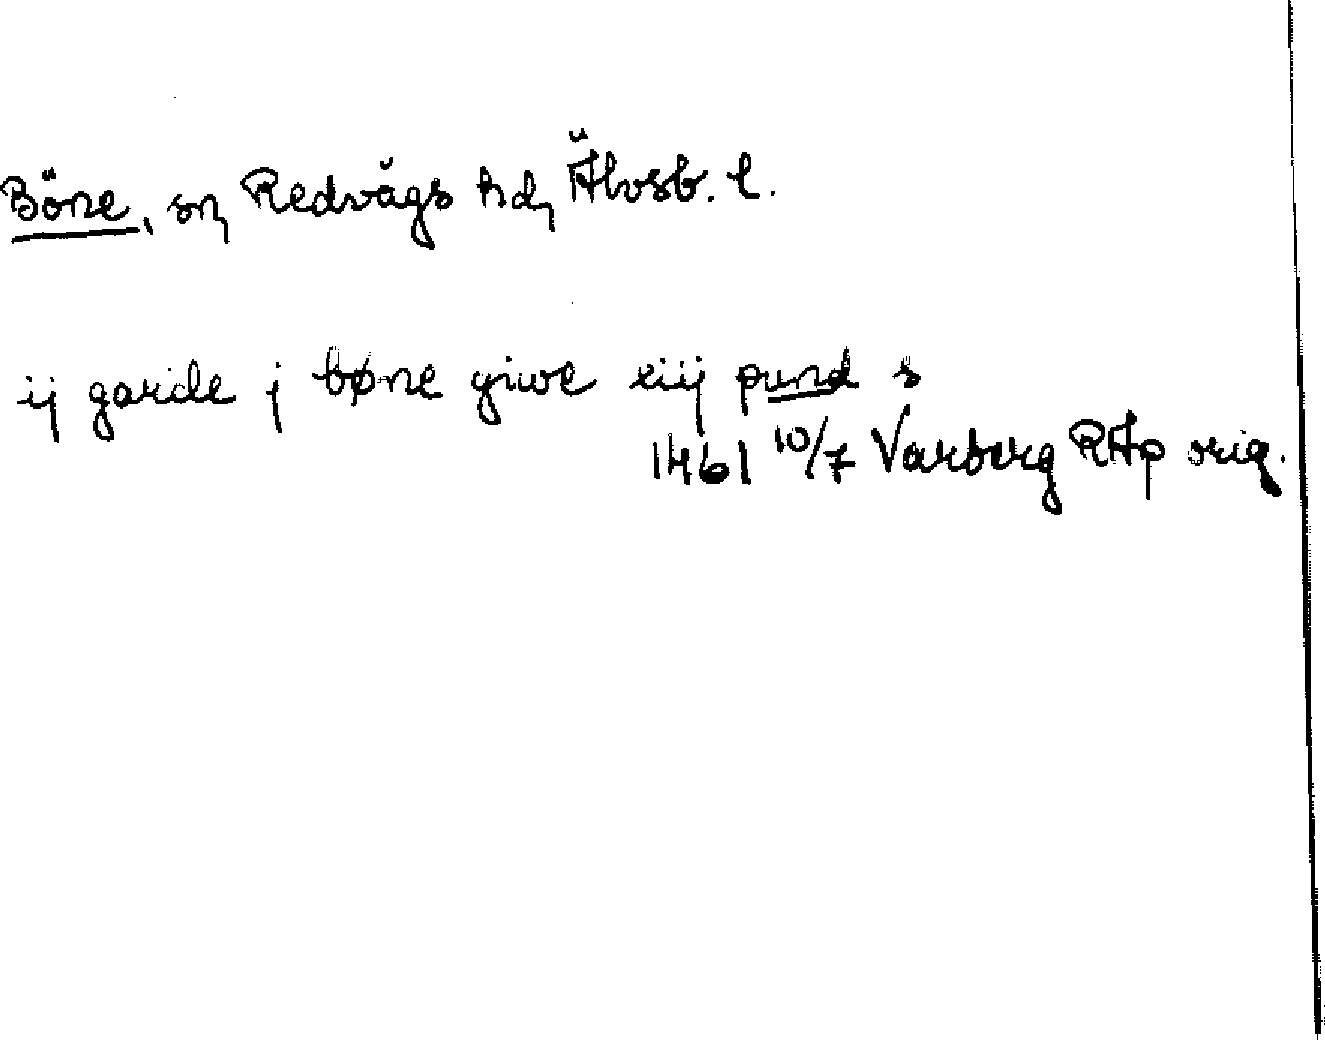 Böne, sn, Redvägs hd, Älvsb. l.
ij garde j bøne giwe xiij pund s
1461 10/7 Varberg RAp orig.